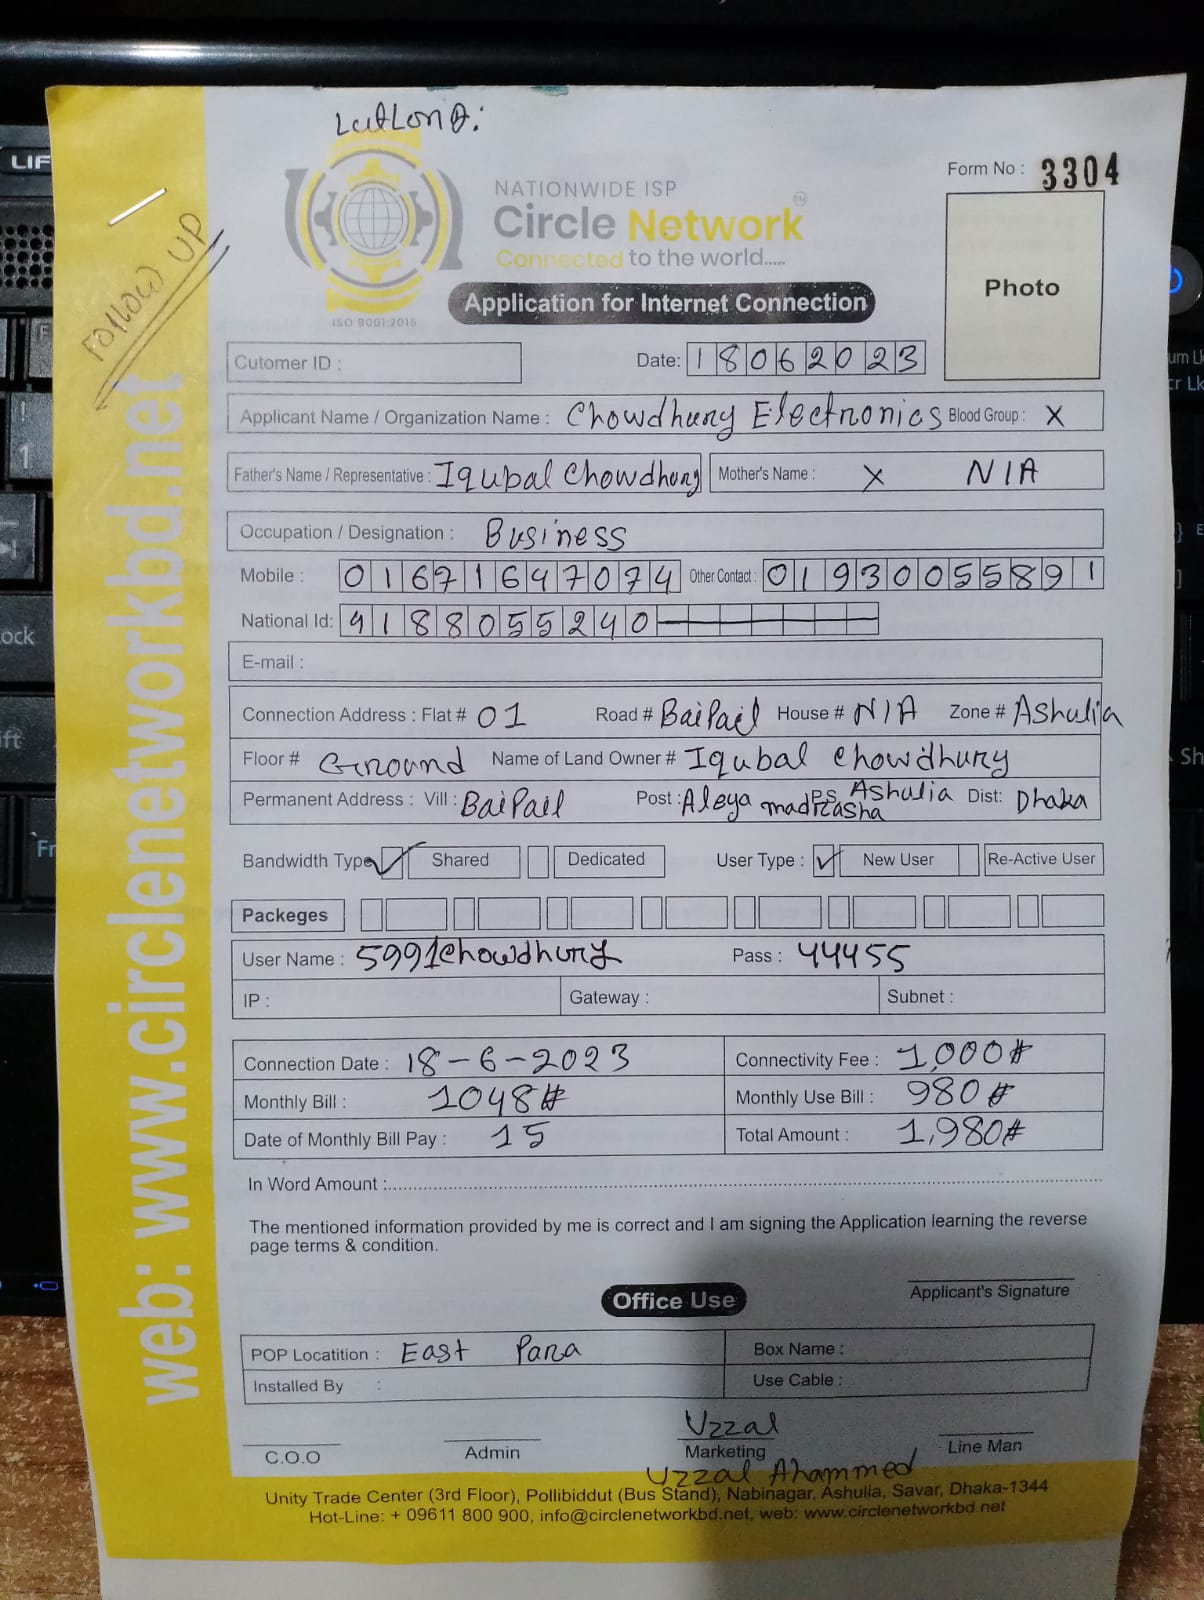 Form No : 3304
NATIONWIDE ISP
Circle Network
Connected to the world.....
ISO 9001:2015
Application for Internet Connection
Photo
FOLLOW UP
web: www.circlenetworkbd.net
Cutomer ID :
Date: 18062023
Applicant Name / Organization Name : Chowdhury Electronics Blood Group : X
Father's Name / Representative : Iqubal Chowdhury Mother's Name : X N/A
Occupation / Designation : Business
Mobile : 01671647074 Other Contact : 01930055891
National Id: 4188055240
E-mail :
Connection Address : Flat # 01 Road # BaiPail House # N/A Zone # Ashulia
Floor # Ground Name of Land Owner # Iqubal Chowdhury
Permanent Address : Vill : BaiPail Post : Aleya madrasha P.S Ashulia Dist: Dhaka
Bandwidth Type ✓ Shared Dedicated User Type : ✓ New User Re-Active User
Packeges
User Name : 5991chowdhury Pass : 44455
IP : Gateway : Subnet :
Connection Date : 18-6-2023 Connectivity Fee : 1,000#
Monthly Bill : 1048# Monthly Use Bill : 980#
Date of Monthly Bill Pay : 15 Total Amount : 1,980#
In Word Amount :
The mentioned information provided by me is correct and I am signing the Application learning the reverse
page terms & condition.
Applicant's Signature
Office Use
POP Locatition : East Para Box Name :
Installed By : Use Cable :
Uzzal
C.O.O Admin Marketing Line Man
Uzzal Ahammed
Unity Trade Center (3rd Floor), Pollibiddut (Bus Stand), Nabinagar, Ashulia, Savar, Dhaka-1344
Hot-Line: + 09611 800 900, info@circlenetworkbd.net, web: www.circlenetworkbd.net